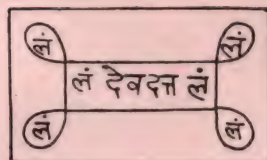 लं लं
लं देवदत्त लं
लं लं